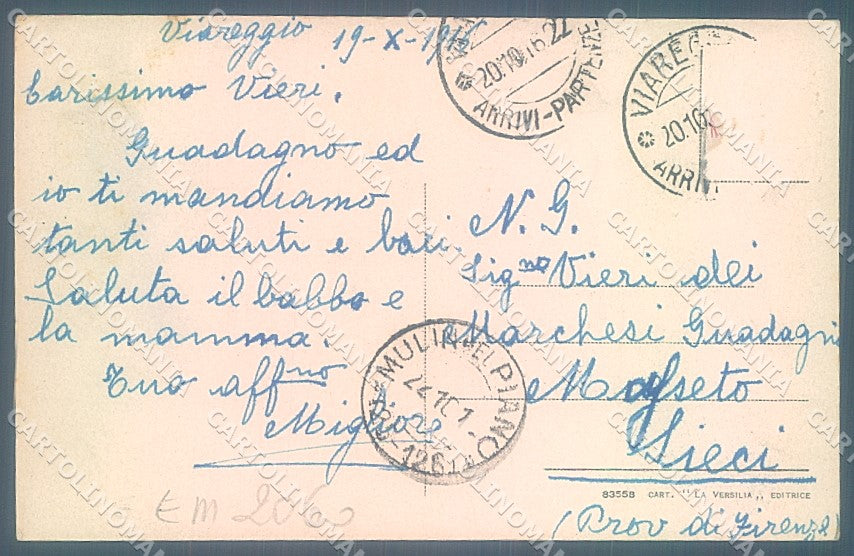 Viareggio 19-X-19
Carissimo Vieri.
Guadagno ed
io ti mandiamo
tanti saluti e baci.
Saluta il babbo e
la mamma.
Tuo aff.mo
Migliore
N. G.
Sig.no Vieri dei
Marchesi Guadagni
Sieci
(Prov di Firenze)
83558 CART. "LA VERSILIA" EDITRICE
20.10.16.22
ARRIVI-PARTENZE
VIAREG
20.10
ARRIVI
MULIN DEL PIANO
EM
CARTOLINOMANIA